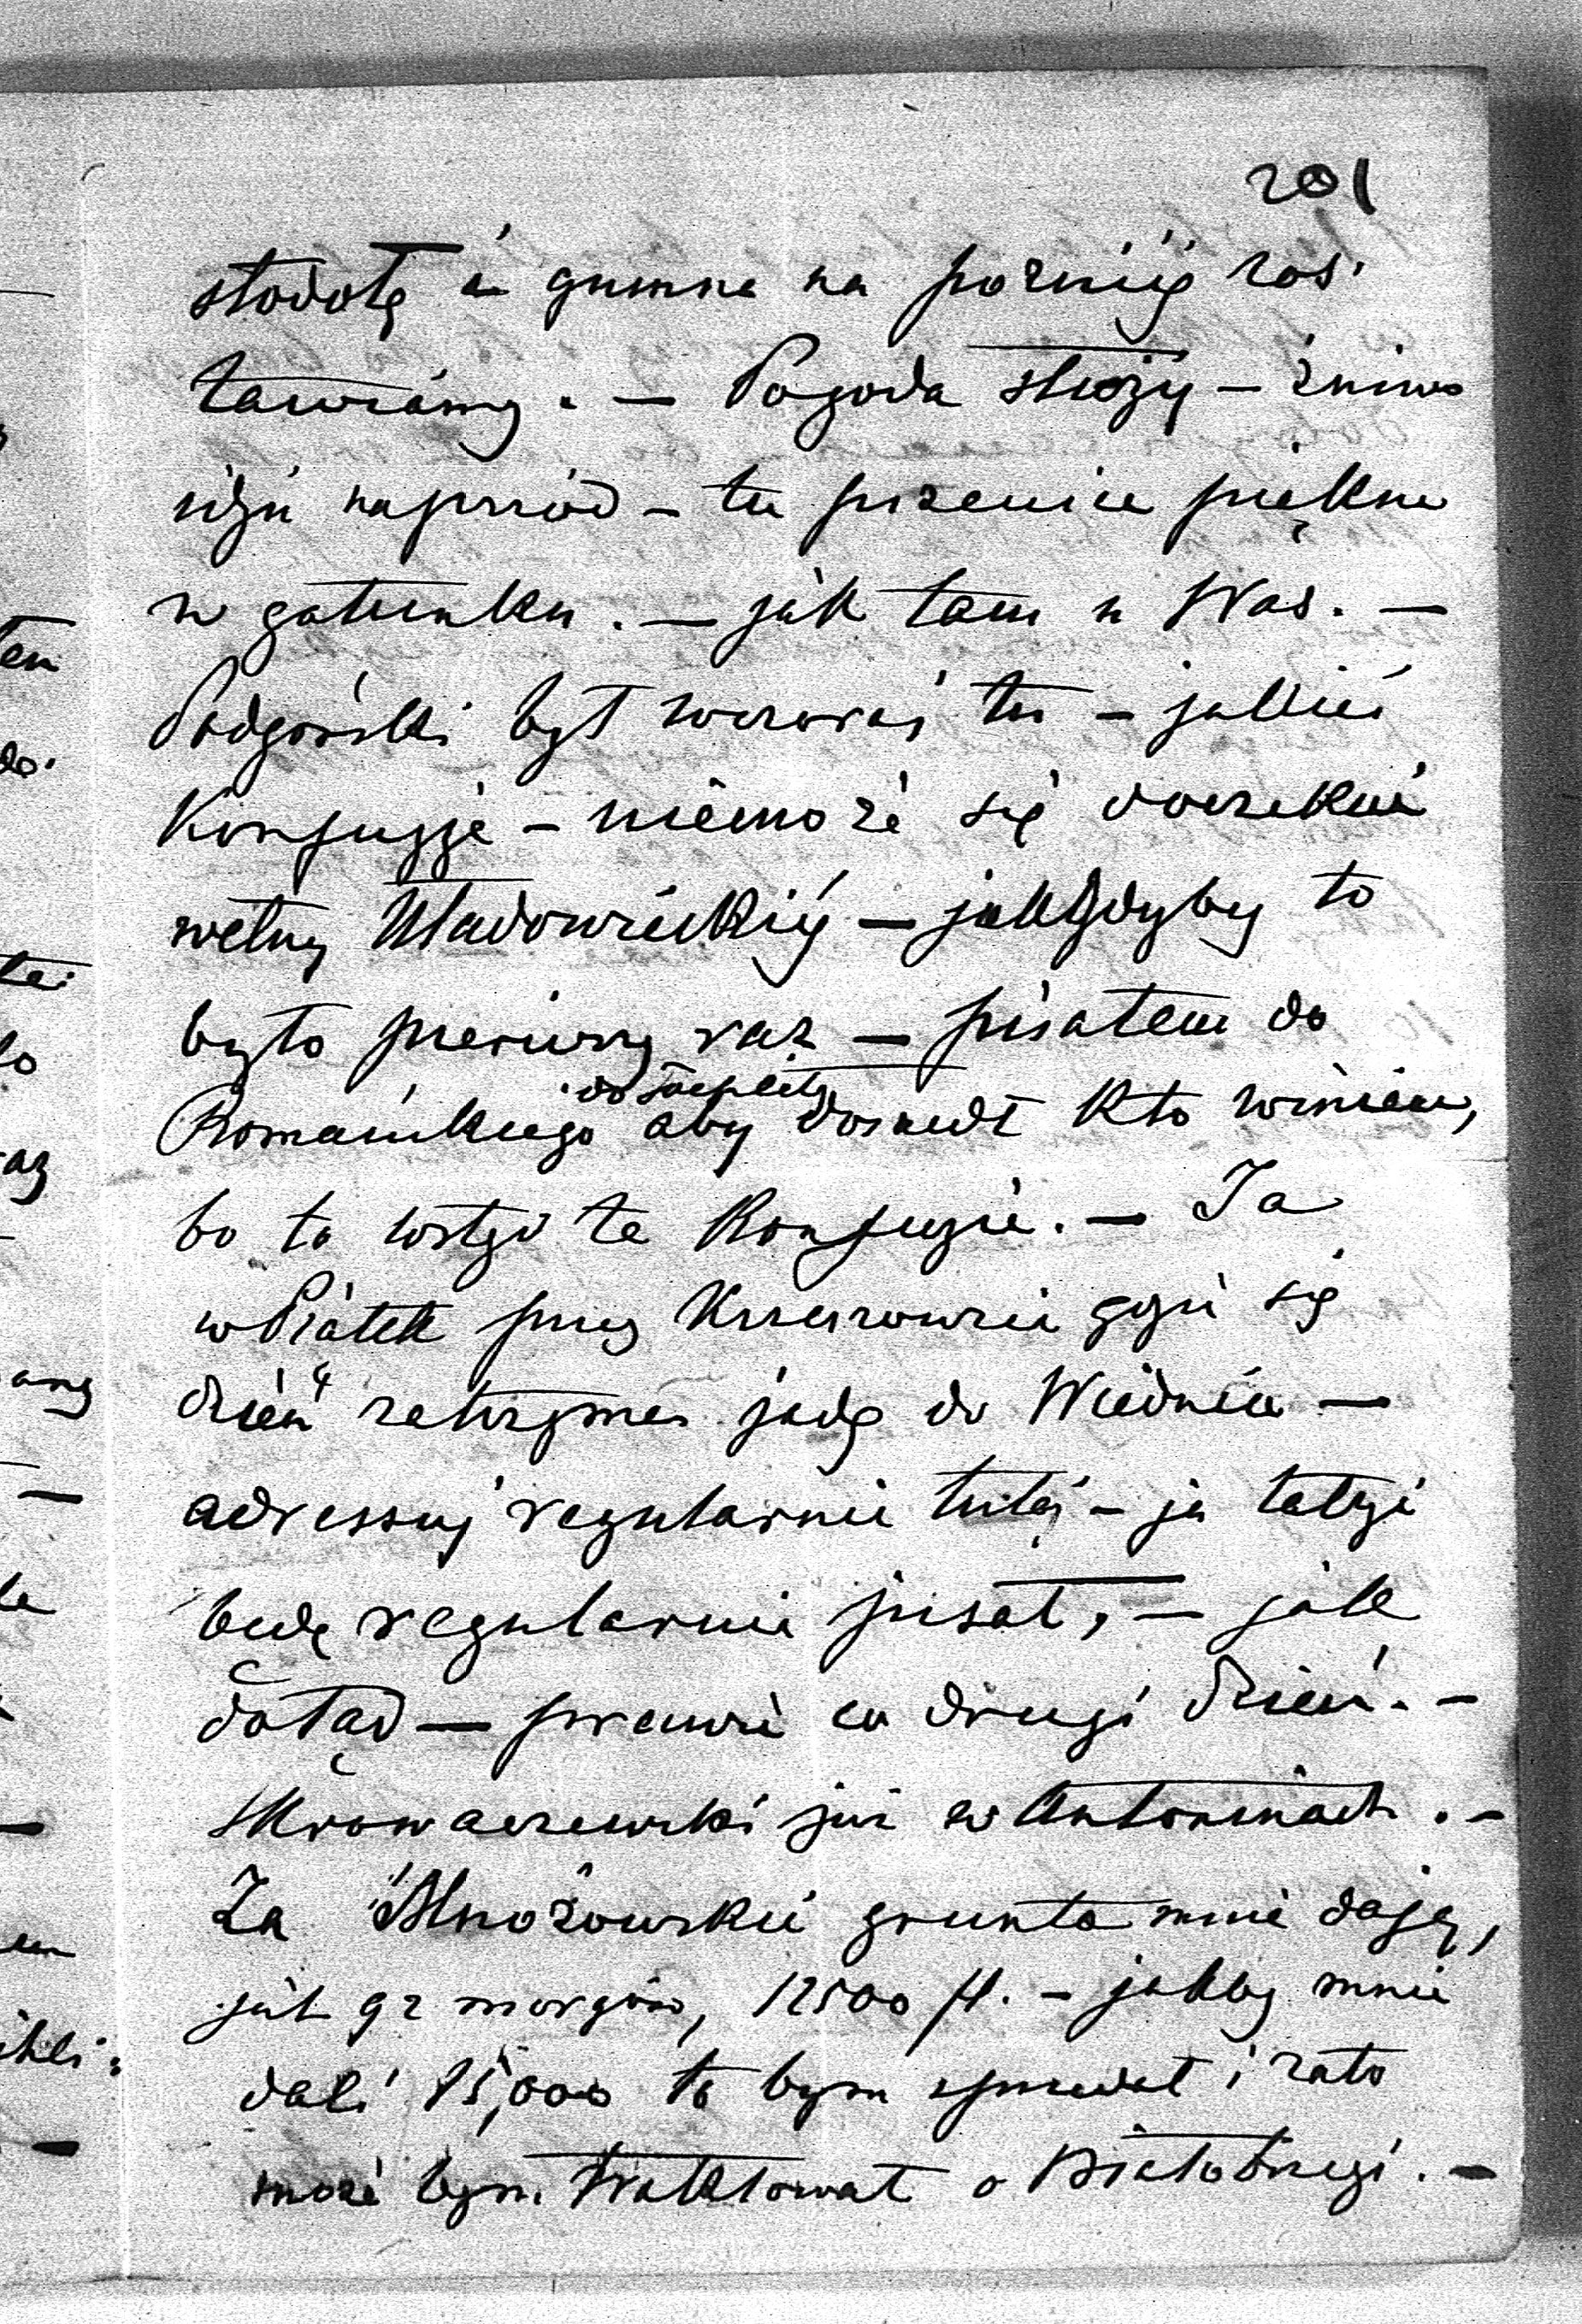 201
stodołę i gumna na pózniéj zos-
tawiámy. — Pogoda służy — żniwo
idzie naprzód – tu pszenica piękna
w gatunku. — jak tam u Was. —
Podgórski był wczoraj tu – jakieś
Konfuzje – niemoże się doczekać
wełny Władowickiéj — jakgdyby to
było pierwszy raz — pisałem do
Romańskiego aby doszedł kto winien,
bo to wstyd te Konfuzie. — Ja
w Piątek przez gdzie się
dzień zatrzymam jadę do Wiednia —
adressuj regularnie tutaj – ja także
będę regularnie pisał, — jak
dotąd — prawie co drugi dzień. –
Skrowaczewski już w Antoninach. –
Za grunta mnie dają,
jest 92 morgów, 12500 fl. – jakby mnie
dali 15,000 to bym sprzedał i zato
może bym traktował o Białobrzegi. —